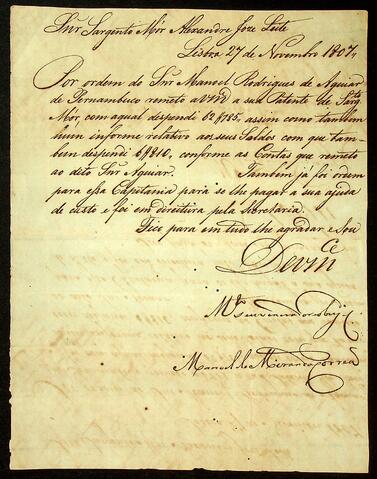 Snr Sargento Mór Alexandre Joze Leite
Lisboa 27 de Novembro 1807,
Por ordem do Snr Manoel Rodrigues de Aguiar
de Pernambuco remeto a VM a sua Patente de Sargto
Mór, com a qual despendi 62$785, assim como tambem
hum informe relativo aos seus Soldos com que tam-
bem despendi 6$810, conforme as Contas que remeto
ao dito Snr Aguiar. Também já foi ordem
para essa Capitania para se lhe pagar a sua ajuda
de custo e foi em direitura pela Secretaria.
Fico para em tudo lhe agradar e sou
De VM ce
Mto seu venerador e obrigo
Manoel de Miranda Correa